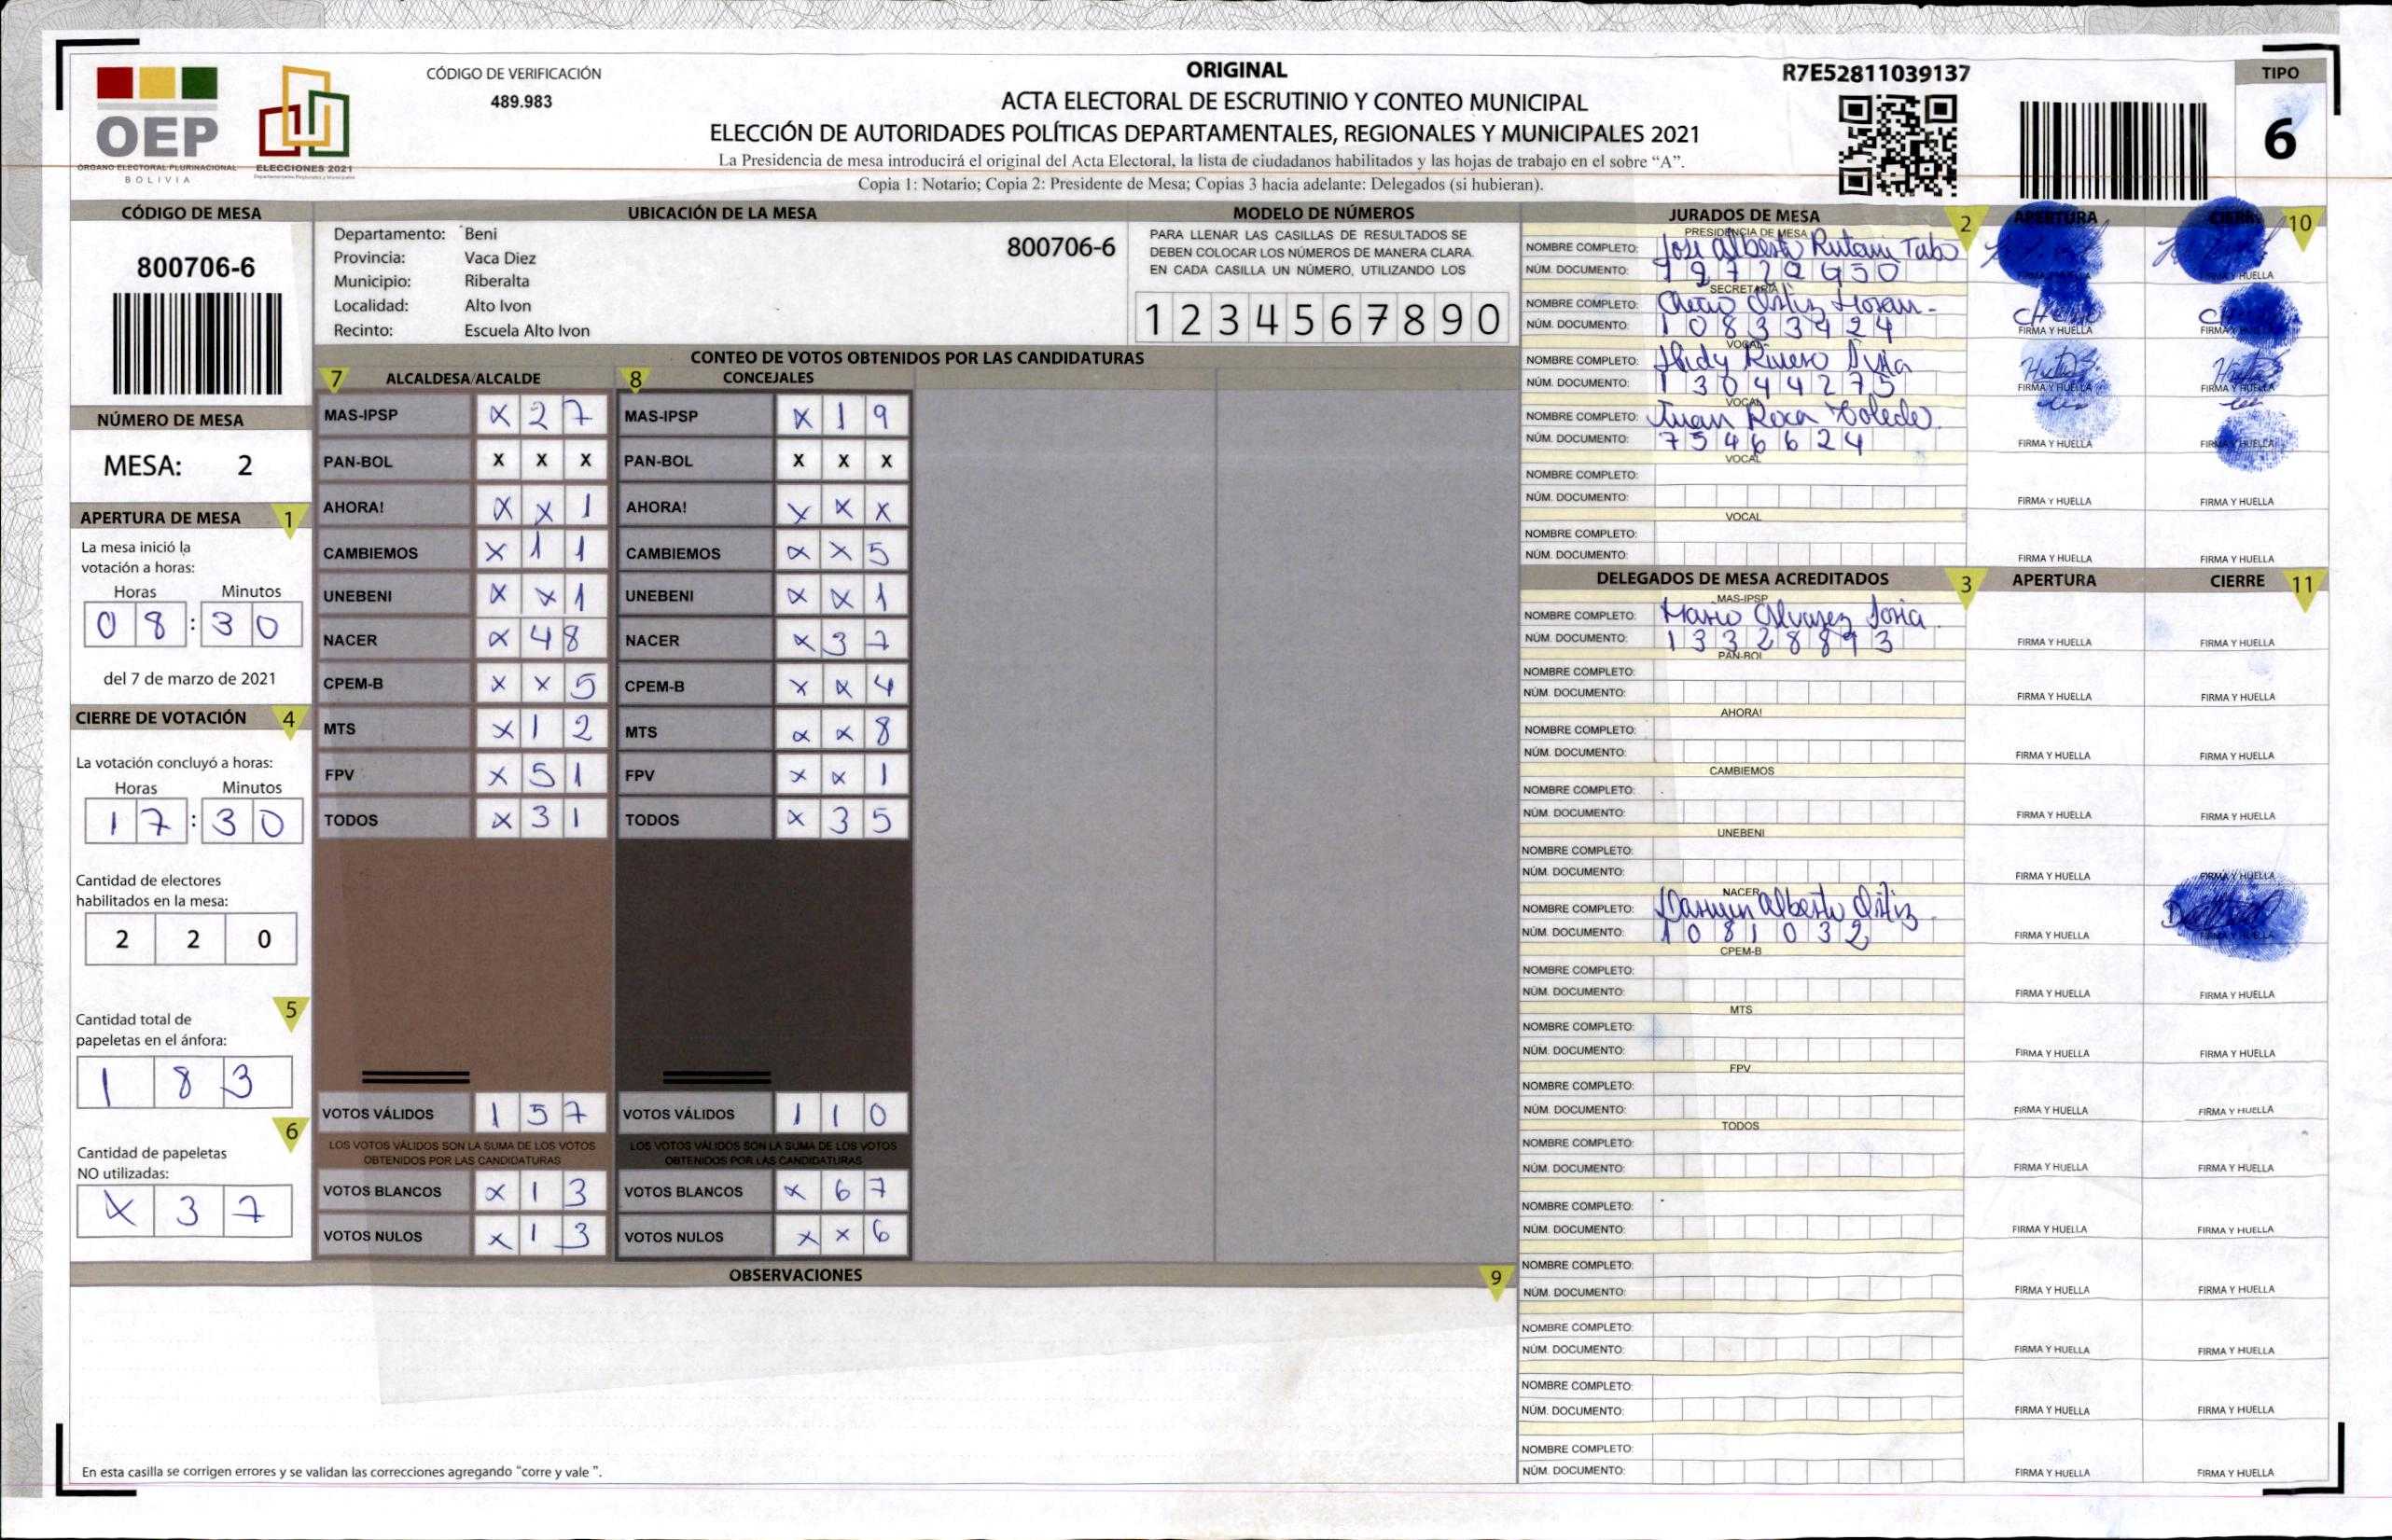 OEP
ÓRGANO ELECTORAL PLURINACIONAL
BOLIVIA
ELECCIONES 2021
CÓDIGO DE VERIFICACIÓN
489.983
ORIGINAL
ACTA ELECTORAL DE ESCRUTINIO Y CONTEO MUNICIPAL
ELECCIÓN DE AUTORIDADES POLÍTICAS DEPARTAMENTALES, REGIONALES Y MUNICIPALES 2021
La Presidencia de mesa introducirá el original del Acta Electoral, la lista de ciudadanos habilitados y las hojas de trabajo en el sobre “A”.
Copia 1: Notario; Copia 2: Presidente de Mesa; Copias 3 hacia adelante: Delegados (si hubieran).
R7E52811039137
TIPO
6
CÓDIGO DE MESA
800706-6
NÚMERO DE MESA
MESA: 2
APERTURA DE MESA 1
La mesa inició la
votación a horas:
Horas Minutos
08:30
del 7 de marzo de 2021
CIERRE DE VOTACIÓN 4
La votación concluyó a horas:
Horas Minutos
17:30
Cantidad de electores
habilitados en la mesa:
2 2 0
5
Cantidad total de
papeletas en el ánfora:
1 8 3
6
Cantidad de papeletas
NO utilizadas:
X 3 7
UBICACIÓN DE LA MESA
Departamento: Beni
Provincia: Vaca Diez
Municipio: Riberalta
Localidad: Alto Ivon
Recinto: Escuela Alto Ivon
800706-6
MODELO DE NÚMEROS
PARA LLENAR LAS CASILLAS DE RESULTADOS SE
DEBEN COLOCAR LOS NÚMEROS DE MANERA CLARA.
EN CADA CASILLA UN NÚMERO, UTILIZANDO LOS
1 2 3 4 5 6 7 8 9 0
CONTEO DE VOTOS OBTENIDOS POR LAS CANDIDATURAS
7 ALCALDESA/ALCALDE 8 CONCEJALES
MAS-IPSP X 2 7 MAS-IPSP X 1 9
PAN-BOL X X X PAN-BOL X X X
AHORA! X X 1 AHORA! X X X
CAMBIEMOS X 1 1 CAMBIEMOS X X 5
UNEBENI X X 1 UNEBENI X X 1
NACER X 4 8 NACER X 3 7
CPEM-B X X 5 CPEM-B X X 4
MTS X 1 2 MTS X X 8
FPV X 5 1 FPV X X 1
TODOS X 3 1 TODOS X 3 5
VOTOS VÁLIDOS 1 5 7 VOTOS VÁLIDOS 1 1 0
LOS VOTOS VÁLIDOS SON LA SUMA DE LOS VOTOS LOS VOTOS VÁLIDOS SON LA SUMA DE LOS VOTOS
OBTENIDOS POR LAS CANDIDATURAS OBTENIDOS POR LAS CANDIDATURAS
VOTOS BLANCOS X 1 3 VOTOS BLANCOS X 6 7
VOTOS NULOS X 1 3 VOTOS NULOS X X 6
OBSERVACIONES 9
En esta casilla se corrigen errores y se validan las correcciones agregando “corre y vale ”.
JURADOS DE MESA 2 APERTURA CIERRE 10
PRESIDENCIA DE MESA
NOMBRE COMPLETO: Jose Alberto Rutani Tabo
NÚM. DOCUMENTO:
FIRMA Y HUELLA
SECRETARIA
NOMBRE COMPLETO: Ortiz
NÚM. DOCUMENTO: 10833424
FIRMA Y HUELLA FIRMA Y HUELLA
VOCAL
NOMBRE COMPLETO:
NÚM. DOCUMENTO: 13044275
FIRMA Y HUELLA FIRMA Y HUELLA
VOCAL
NOMBRE COMPLETO: Juan Roca Toledo
NÚM. DOCUMENTO: 7546624
FIRMA Y HUELLA FIRMA Y HUELLA
VOCAL
NOMBRE COMPLETO:
NÚM. DOCUMENTO: FIRMA Y HUELLA FIRMA Y HUELLA
VOCAL
NOMBRE COMPLETO:
NÚM. DOCUMENTO: FIRMA Y HUELLA FIRMA Y HUELLA
DELEGADOS DE MESA ACREDITADOS 3 APERTURA CIERRE 11
MAS-IPSP
NOMBRE COMPLETO: Mario Alvarez Soria
NÚM. DOCUMENTO: FIRMA Y HUELLA FIRMA Y HUELLA
PAN-BOL
NOMBRE COMPLETO:
NÚM. DOCUMENTO: FIRMA Y HUELLA FIRMA Y HUELLA
AHORA!
NOMBRE COMPLETO:
NÚM. DOCUMENTO: FIRMA Y HUELLA FIRMA Y HUELLA
CAMBIEMOS
NOMBRE COMPLETO:
NÚM. DOCUMENTO: FIRMA Y HUELLA FIRMA Y HUELLA
UNEBENI
NOMBRE COMPLETO:
NÚM. DOCUMENTO: FIRMA Y HUELLA FIRMA Y HUELLA
NACER
NOMBRE COMPLETO: Alberto Ortiz
NÚM. DOCUMENTO: 1081032 FIRMA Y HUELLA FIRMA Y HUELLA
CPEM-B
NOMBRE COMPLETO:
NÚM. DOCUMENTO: FIRMA Y HUELLA FIRMA Y HUELLA
MTS
NOMBRE COMPLETO:
NÚM. DOCUMENTO: FIRMA Y HUELLA FIRMA Y HUELLA
FPV
NOMBRE COMPLETO:
NÚM. DOCUMENTO: FIRMA Y HUELLA FIRMA Y HUELLA
TODOS
NOMBRE COMPLETO:
NÚM. DOCUMENTO: FIRMA Y HUELLA FIRMA Y HUELLA
NOMBRE COMPLETO:
NÚM. DOCUMENTO: FIRMA Y HUELLA FIRMA Y HUELLA
NOMBRE COMPLETO:
NÚM. DOCUMENTO: FIRMA Y HUELLA FIRMA Y HUELLA
NOMBRE COMPLETO:
NÚM. DOCUMENTO: FIRMA Y HUELLA FIRMA Y HUELLA
NOMBRE COMPLETO:
NÚM. DOCUMENTO: FIRMA Y HUELLA FIRMA Y HUELLA
NOMBRE COMPLETO:
NÚM. DOCUMENTO: FIRMA Y HUELLA FIRMA Y HUELLA